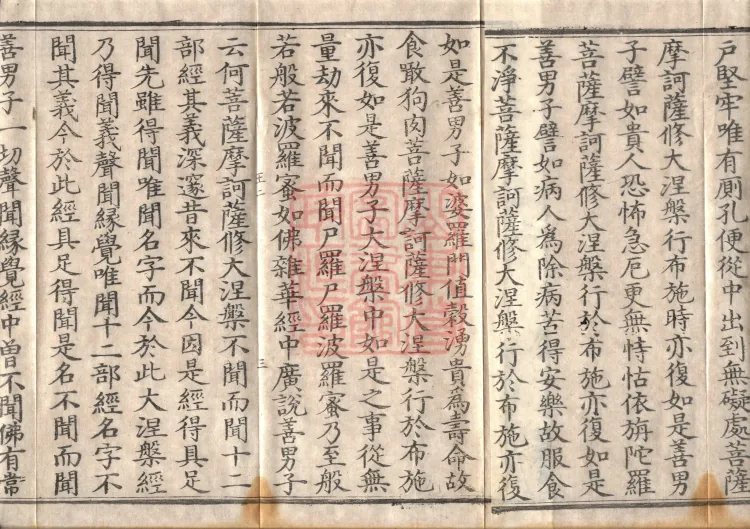 戶堅牢唯有厠孔便從中出到無礙處菩薩
摩訶薩修大涅槃行布施時亦復如是善男
子譬如貴人恐怖急厄更無恃怙依旃陀羅
菩薩摩訶薩修大涅槃行於布施亦復如是
善男子譬如病人爲除病苦得安樂故服食
不淨菩薩摩訶薩修大涅槃行於布施亦復
如是善男子如婆羅門值穀湧貴爲壽命故
食噉狗肉菩薩摩訶薩修大涅槃行於布施
亦復如是善男子大涅槃中如是之事從無
量劫來不聞而聞尸羅尸羅波羅蜜乃至般
若般若波羅蜜如佛雜華經中廣說善男子
云何菩薩摩訶薩修大涅槃不聞而聞十二
部經其義深邃昔來不聞今因是經得具足
聞先雖得聞唯聞名字而今於此大涅槃經
乃得聞義聲聞緣覺唯聞十二部經名字不
聞其義今於此經具足得聞是名不聞而聞
善男子一切聲聞緣覺經中曾不聞佛有常